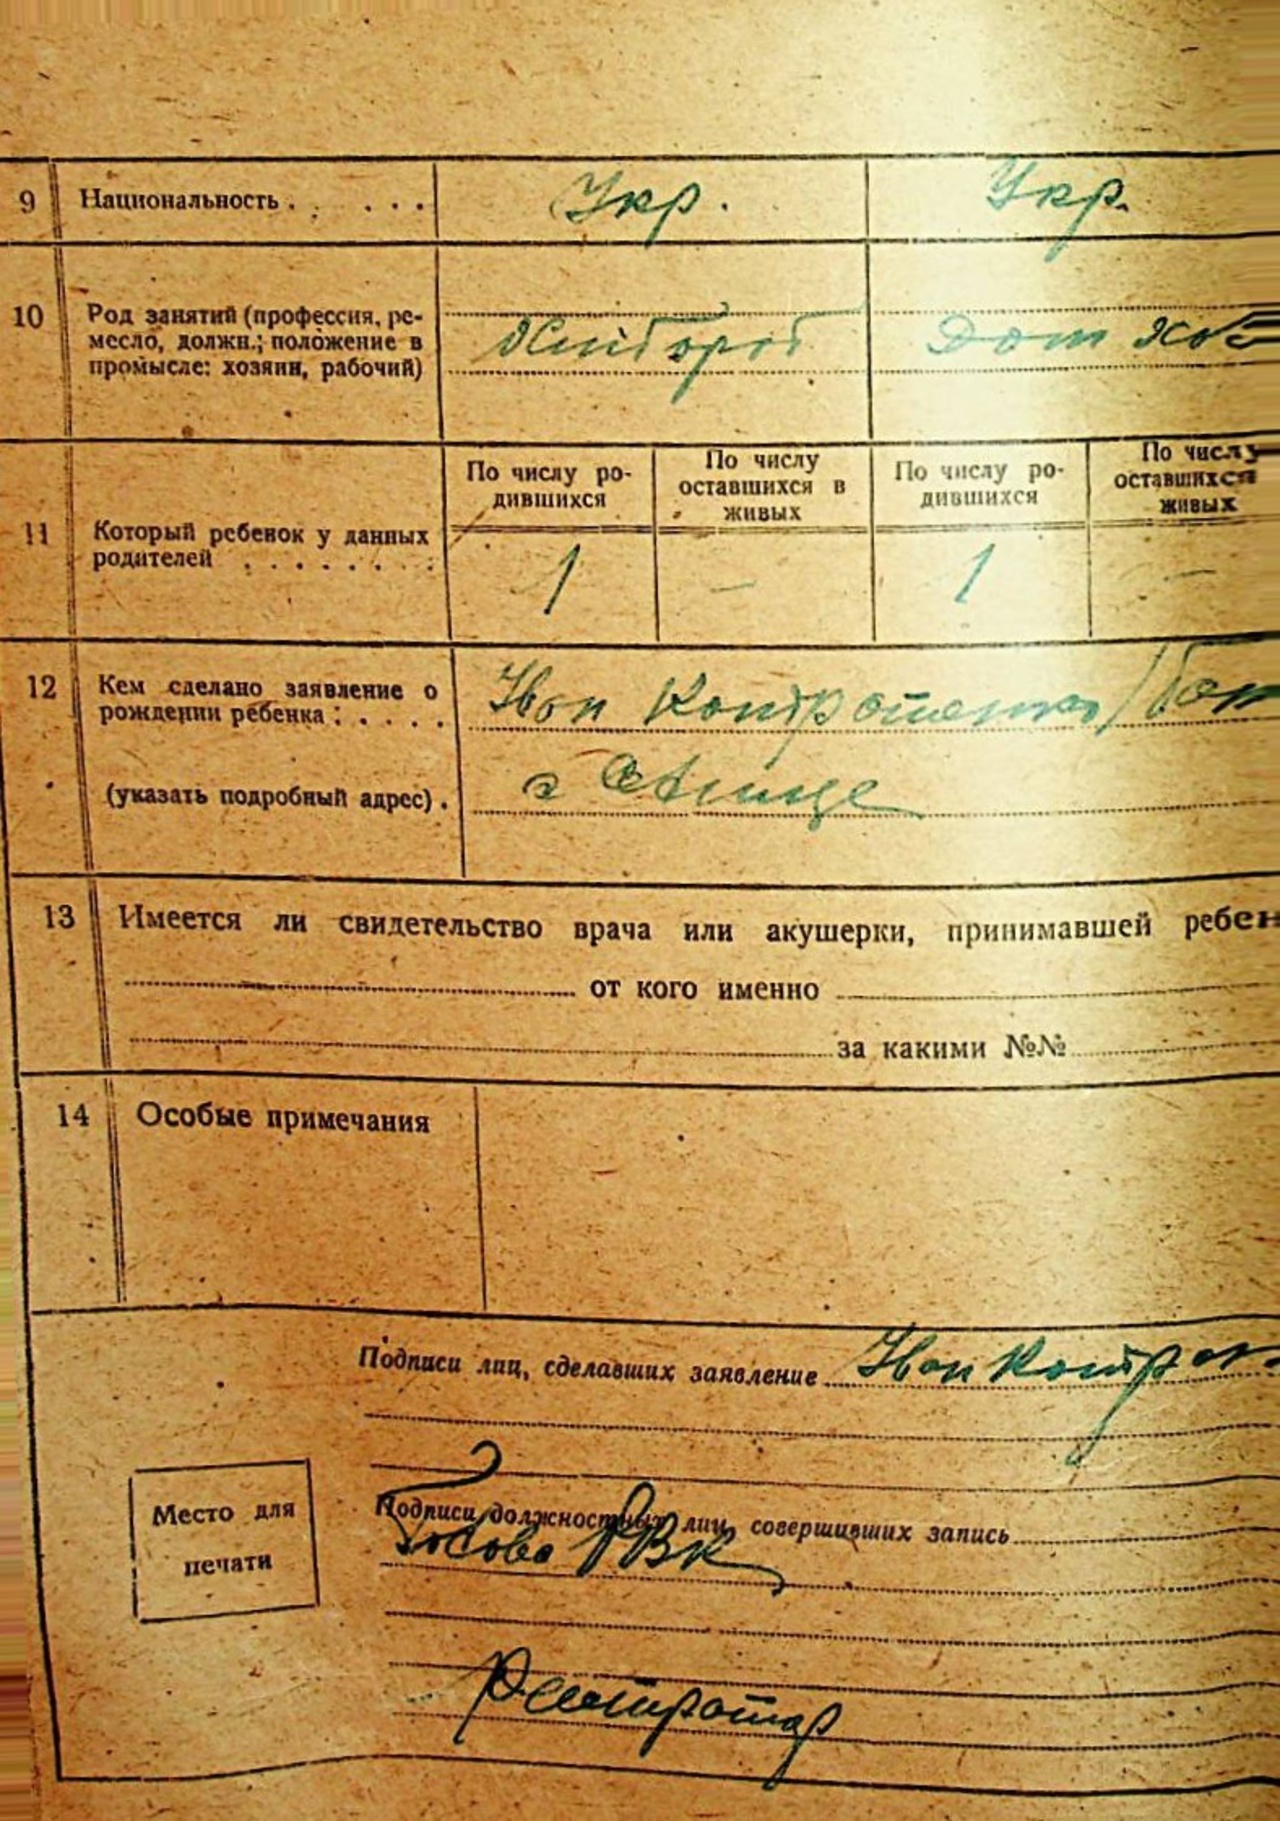 9 Национальность . . . . . Укр. Укр.
10 Род занятий (профессия, ре-
месло, должн.; положение в
промысле: хозяин, рабочий)
Хлібороб Дом хоз
11 Который ребенок у данных
родителей . . . . . . . .
По числу ро-
дившихся
По числу
оставшихся в
живых
По числу ро-
дившихся
По числу
оставшихся
живых
1 – 1 –
12 Кем сделано заявление о
рождении ребенка: . . . .
Ивон
(указать подробный адрес) .
13 Имеется ли свидетельство врача или акушерки, принимавшей ребен
от кого именно
за какими №№
14 Особые примечания
Подписи лиц, сделавших заявление Ивон
Место для
печати
Подписи должностных лиц, совершивших запись